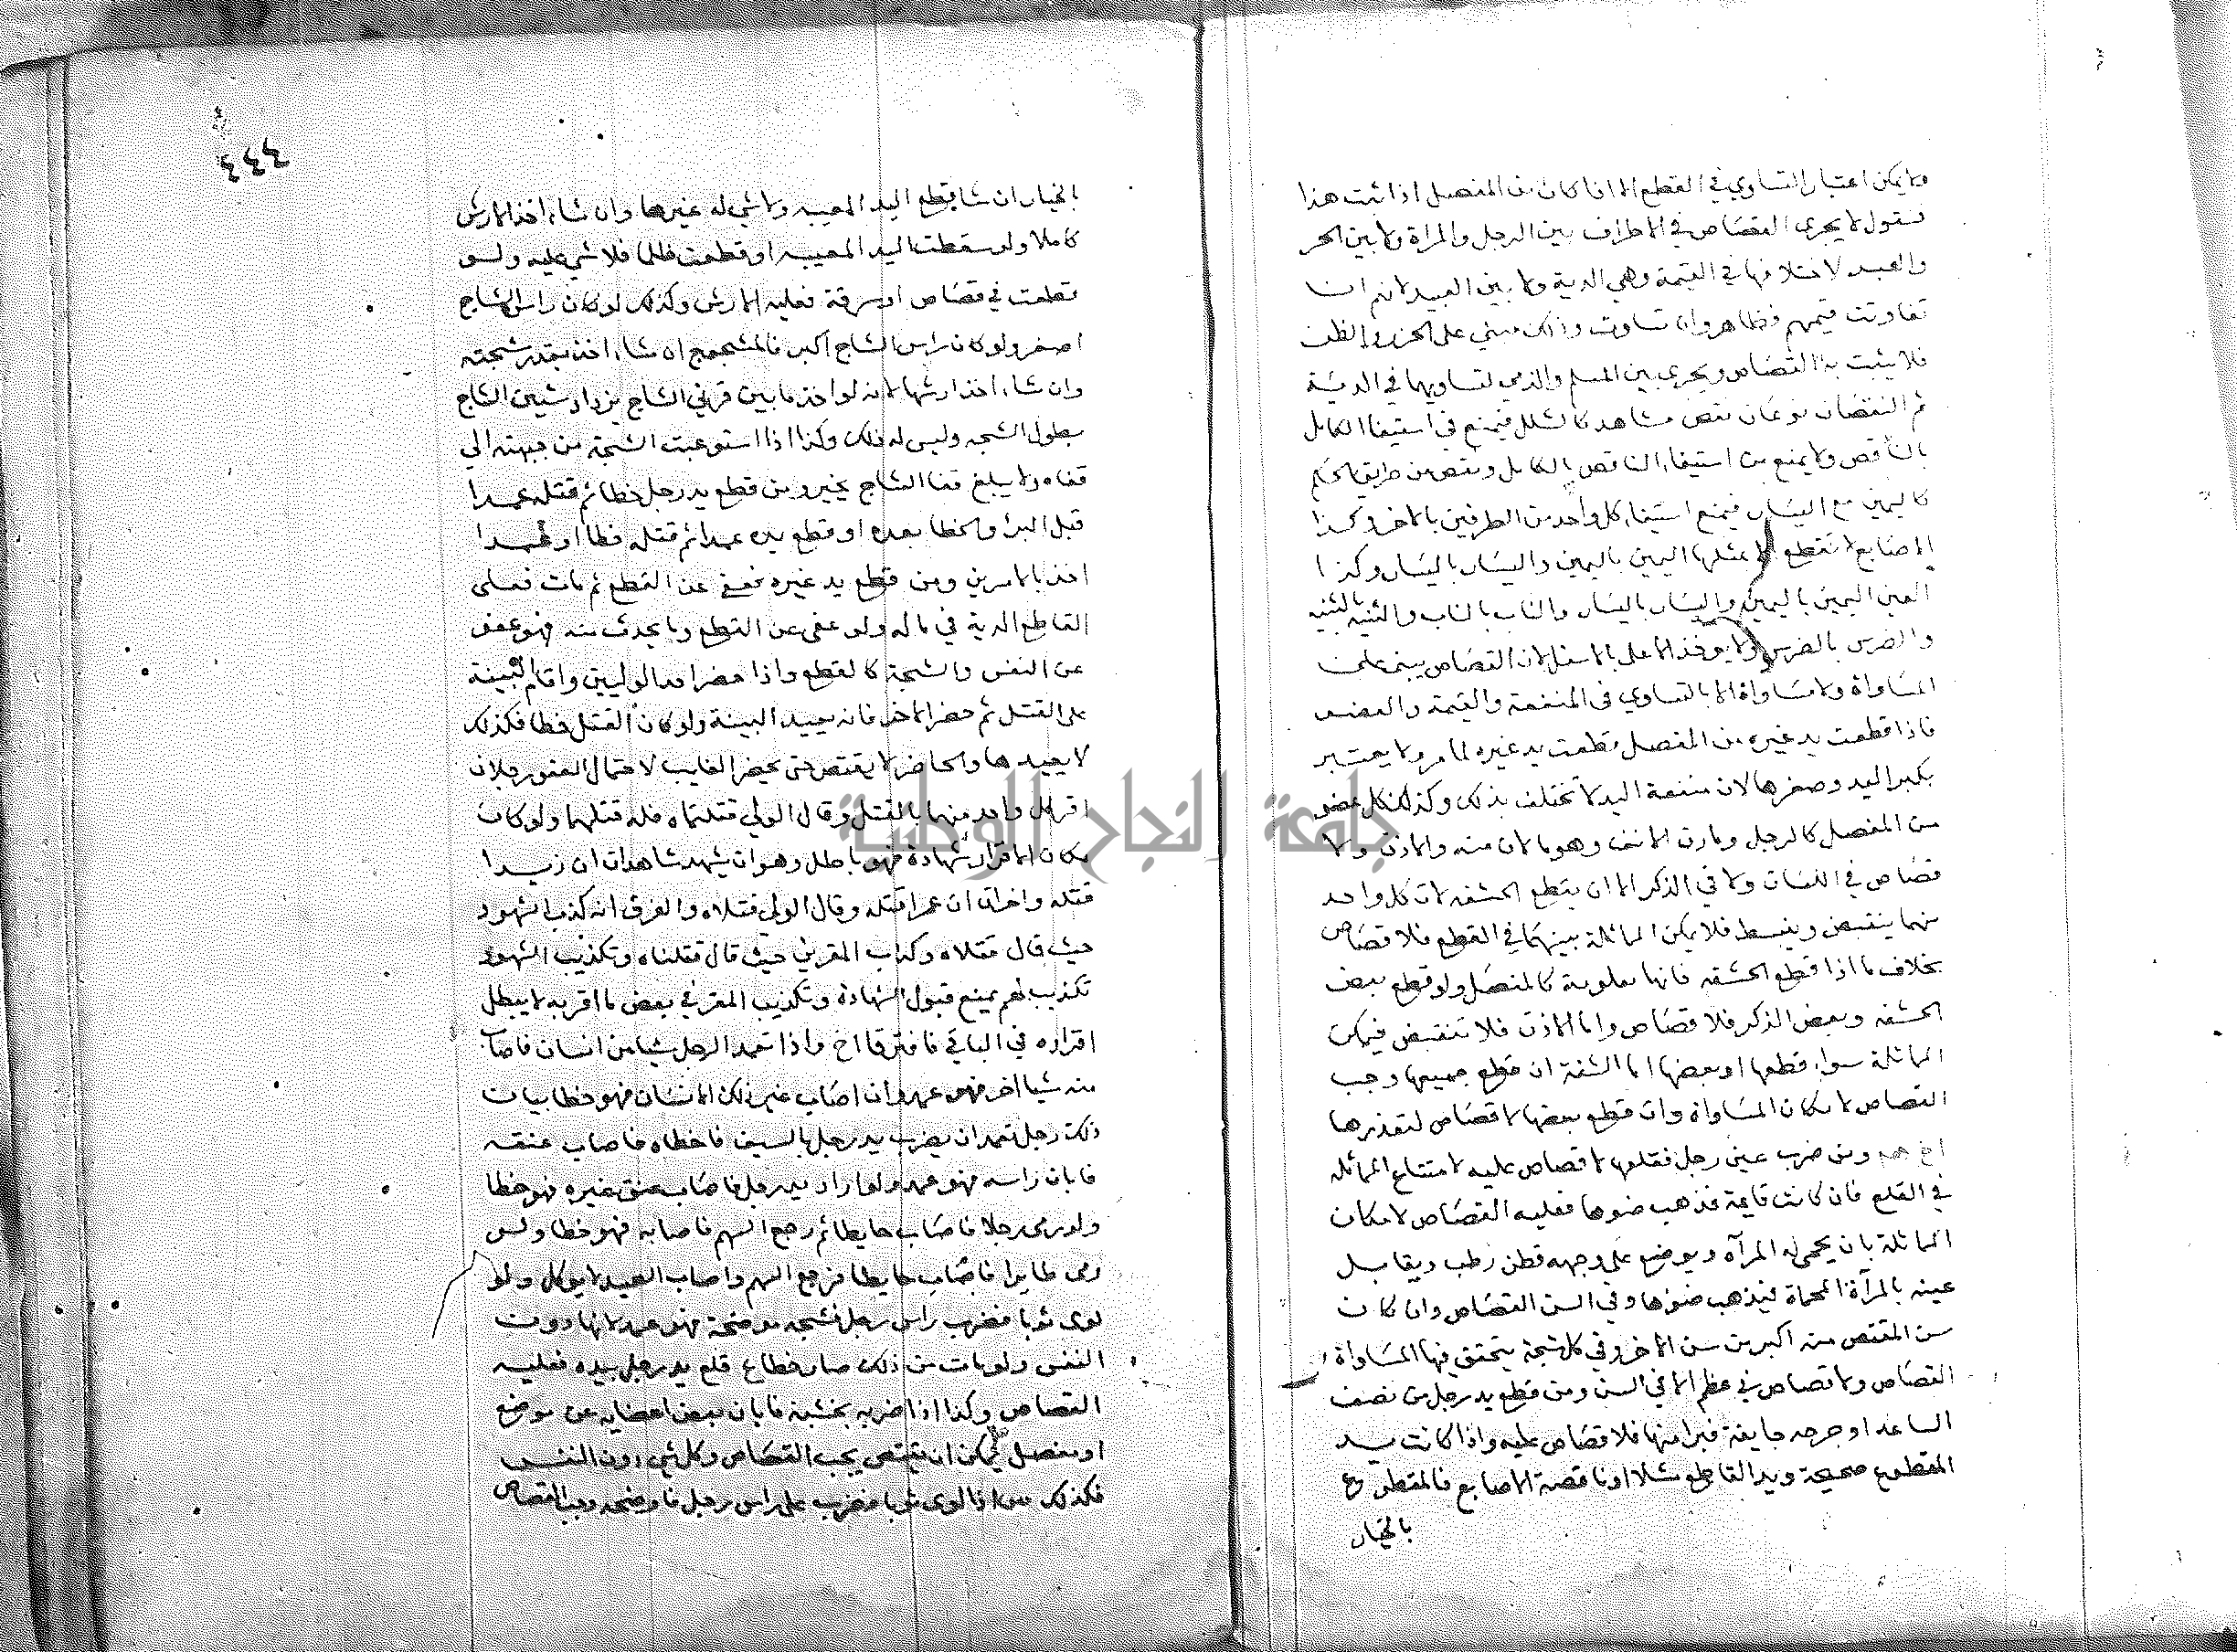 ولا يمكن اعتبار التساوي في القطع الا اذا كان من المفصل اذا ثبت هذا
فنقول لا يجري القصاص في الاطراف بين الرجل والمراة ولا بين الحر
والعبد لاختلافهما في القيمة وهي الدية ولا بين العبيد لانهم ان
تفاوتت قيمهم فظاهر وان تساوت وذلك مبني على الحزر والظن
فلا يثبت به القصاص ويجري بين المسلم والذمي لتساويهما في الدية
ثم النقصان نوعان نقص مشاهد كالشلل فيمنع في استيفا الكامل
بالناقص ولا يمنع من استيفاء الناقص بالكامل ونقص من طريق الحكم
كاليمين مع اليسار فيمنع استيفاء كل واحد من الطرفين بالاخر وكذا
الاصابع لا تقطع الا بمثلها اليمين باليمين واليسار باليسار وكذا
العين اليمين باليمين واليسار باليسار والناب بالناب والثنية بالثنية
والضرس بالضرس ولا يوخذ الاعلى بالاسفل لان القصاص ينبي على
المساواة ولا مساواة الا بالتساوي في المنفعة والقيمة والعضو
فاذا قطعت يد غيره من المفصل قطعت يد غيره لما مر ولا يعتبر
بكبر اليد وصغرها لان منفعة اليد لا تختلف بذلك وكذلك كل عضو
من المفصل كالرجل ومارن الانف وهو ما لان منه والاذن ولا
قصاص في اللسان ولا في الذكر الا ان يقطع الحشفه لان كل واحد
منهما ينقبض وينبسط فلا يمكن المماثلة بينهما في القطع فلا قصاص
بخلاف ما اذا قطع الحشفه فانها معلومة كالمفصل ولو قطع بعض
الحشفه وبعض الذكر فلا قصاص واما الاذن فلا تنقبض فيمكن
المماثلة سواء قطعها او بعضها اما الشفة ان قطع جميعها وجب
القصاص لامكان المساواة وان قطع بعضها لا قصاص لتعذرها
ومن ضرب عين رجل فقلعها لا قصاص عليه لامتناع المماثله
في القلع فان كانت قايمة فذهب ضوها فعليه القصاص لامكان
المماثلة بان يحمى له المرآة ويوضع على وجهه قطن رطب ويقابل
عينه بالمرآة المحماة فيذهب ضوءها وفي السن القصاص وان كان
سن المقتص منه اكبر من سن الاخر وفي كل شجة يتحقق فيها المساواة
القصاص ولا قصاص في عظم الا في السن ومن قطع يد رجل من نصف
الساعد او جرحه جايفة فبرا منها فلا قصاص عليه واذا كانت يد
المقطوع صحيحة ويد القاطع شلا او ناقصة الاصابع فالمقطوع
بالخيار
٤٤٤
بالخيار ان شا يقطع اليد المعيبه ولا شي له غيرها وان شاء اخذ الارش
كاملا ولو سقطت اليد المعيبه او قطعت ظلما فلا شي عليه ولو
قطعت في قصاص او سرقة فعليه الارش وكذلك لو كان راس الشاج
اصغر ولو كان راس الشاج اكبر فالمشجوج ان شاء اخذ بقدر شجته
وان شاء اخذ ارشها لانه لو اخذ ما بين قرني الشاج يزداد شين الشاج
بطول الشجه وليس له ذلك وكذا اذا استوعبت الشجة من جبهته الى
قفاه ولا يبلغ قفا الشاج يخير ومن قطع يد رجل خطا ثم قتله عمدا
قبل البرا والخطا بعده او قطع يده عمدا ثم قتله خطا او عمدا
اخذ بالامرين ومن قطع يد غيره فعفى عن القطع ثم مات فعلى
القاطع الدية في ماله ولو عفى عن القطع وما يحدث منه فهو عفو
عن النفس والشجة كالقطع واذا حضر احد الوليين واقام البينة
على القتل ثم حضر الاخر فانه يعيد البينة ولو كان القتل خطا فكذلك
لا يعيدها والحاضر لا يقتص حتى يحضر الغايب لاحتمال العفو رجلان
اقر كل واحد منهما بالقتل وقال الولي قتلتماه فله قتلهما ولو كان
مكان الاقرار شهادة فهو باطل وهو ان يشهد شاهدان ان زيدا
قتله واخران ان عمرا قتله وقال الولي قتلاه والفرق انه كذب الشهود
حيث قال قتلاه وكذب المقرين حيث قال قتلتماه وتكذيب الشهود
تكذيب لهم يمنع قبول الشهادة وتكذيب المقر في بعض ما اقر به لا يبطل
اقراره في الباقي فافترقا اخ واذا تعمد الرجل شيا من انسان فاصاب
منه شيا اخر فهو عمد وان اصاب غير ذلك الانسان فهو خطا بيان
ذلك رجل تعمد ان يضرب يد رجل بالسيف فاخطاه فاصاب عنقه
فابان راسه فهو عمد ولو اراد يد رجل فاصاب عنق غيره فهو خطا
ولو رمى رجلا فاصاب حايطا ثم رجع السهم فاصابه فهو خطا ولو
رمى طايرا فاصاب حايطا فرجع السهم واصاب الصيد لا يوكل ولو
لوى ثوبا فضرب راس رجل فشجه موضحة فهو عمد لانها دون
النفس ولو مات من ذلك صار خطا قلع يد رجل بيده فعليه
القصاص وكذا اذا ضربه بخشبة فابان بعض اعضايه عن موضع
او مفصل يمكن ان يقتص يجب القصاص وكل شي دون النفس
فكذلك اذا لوى ثوبا فضرب على راس رجل فاوضحه وجب القصاص
جامعة النجاح الوطنية